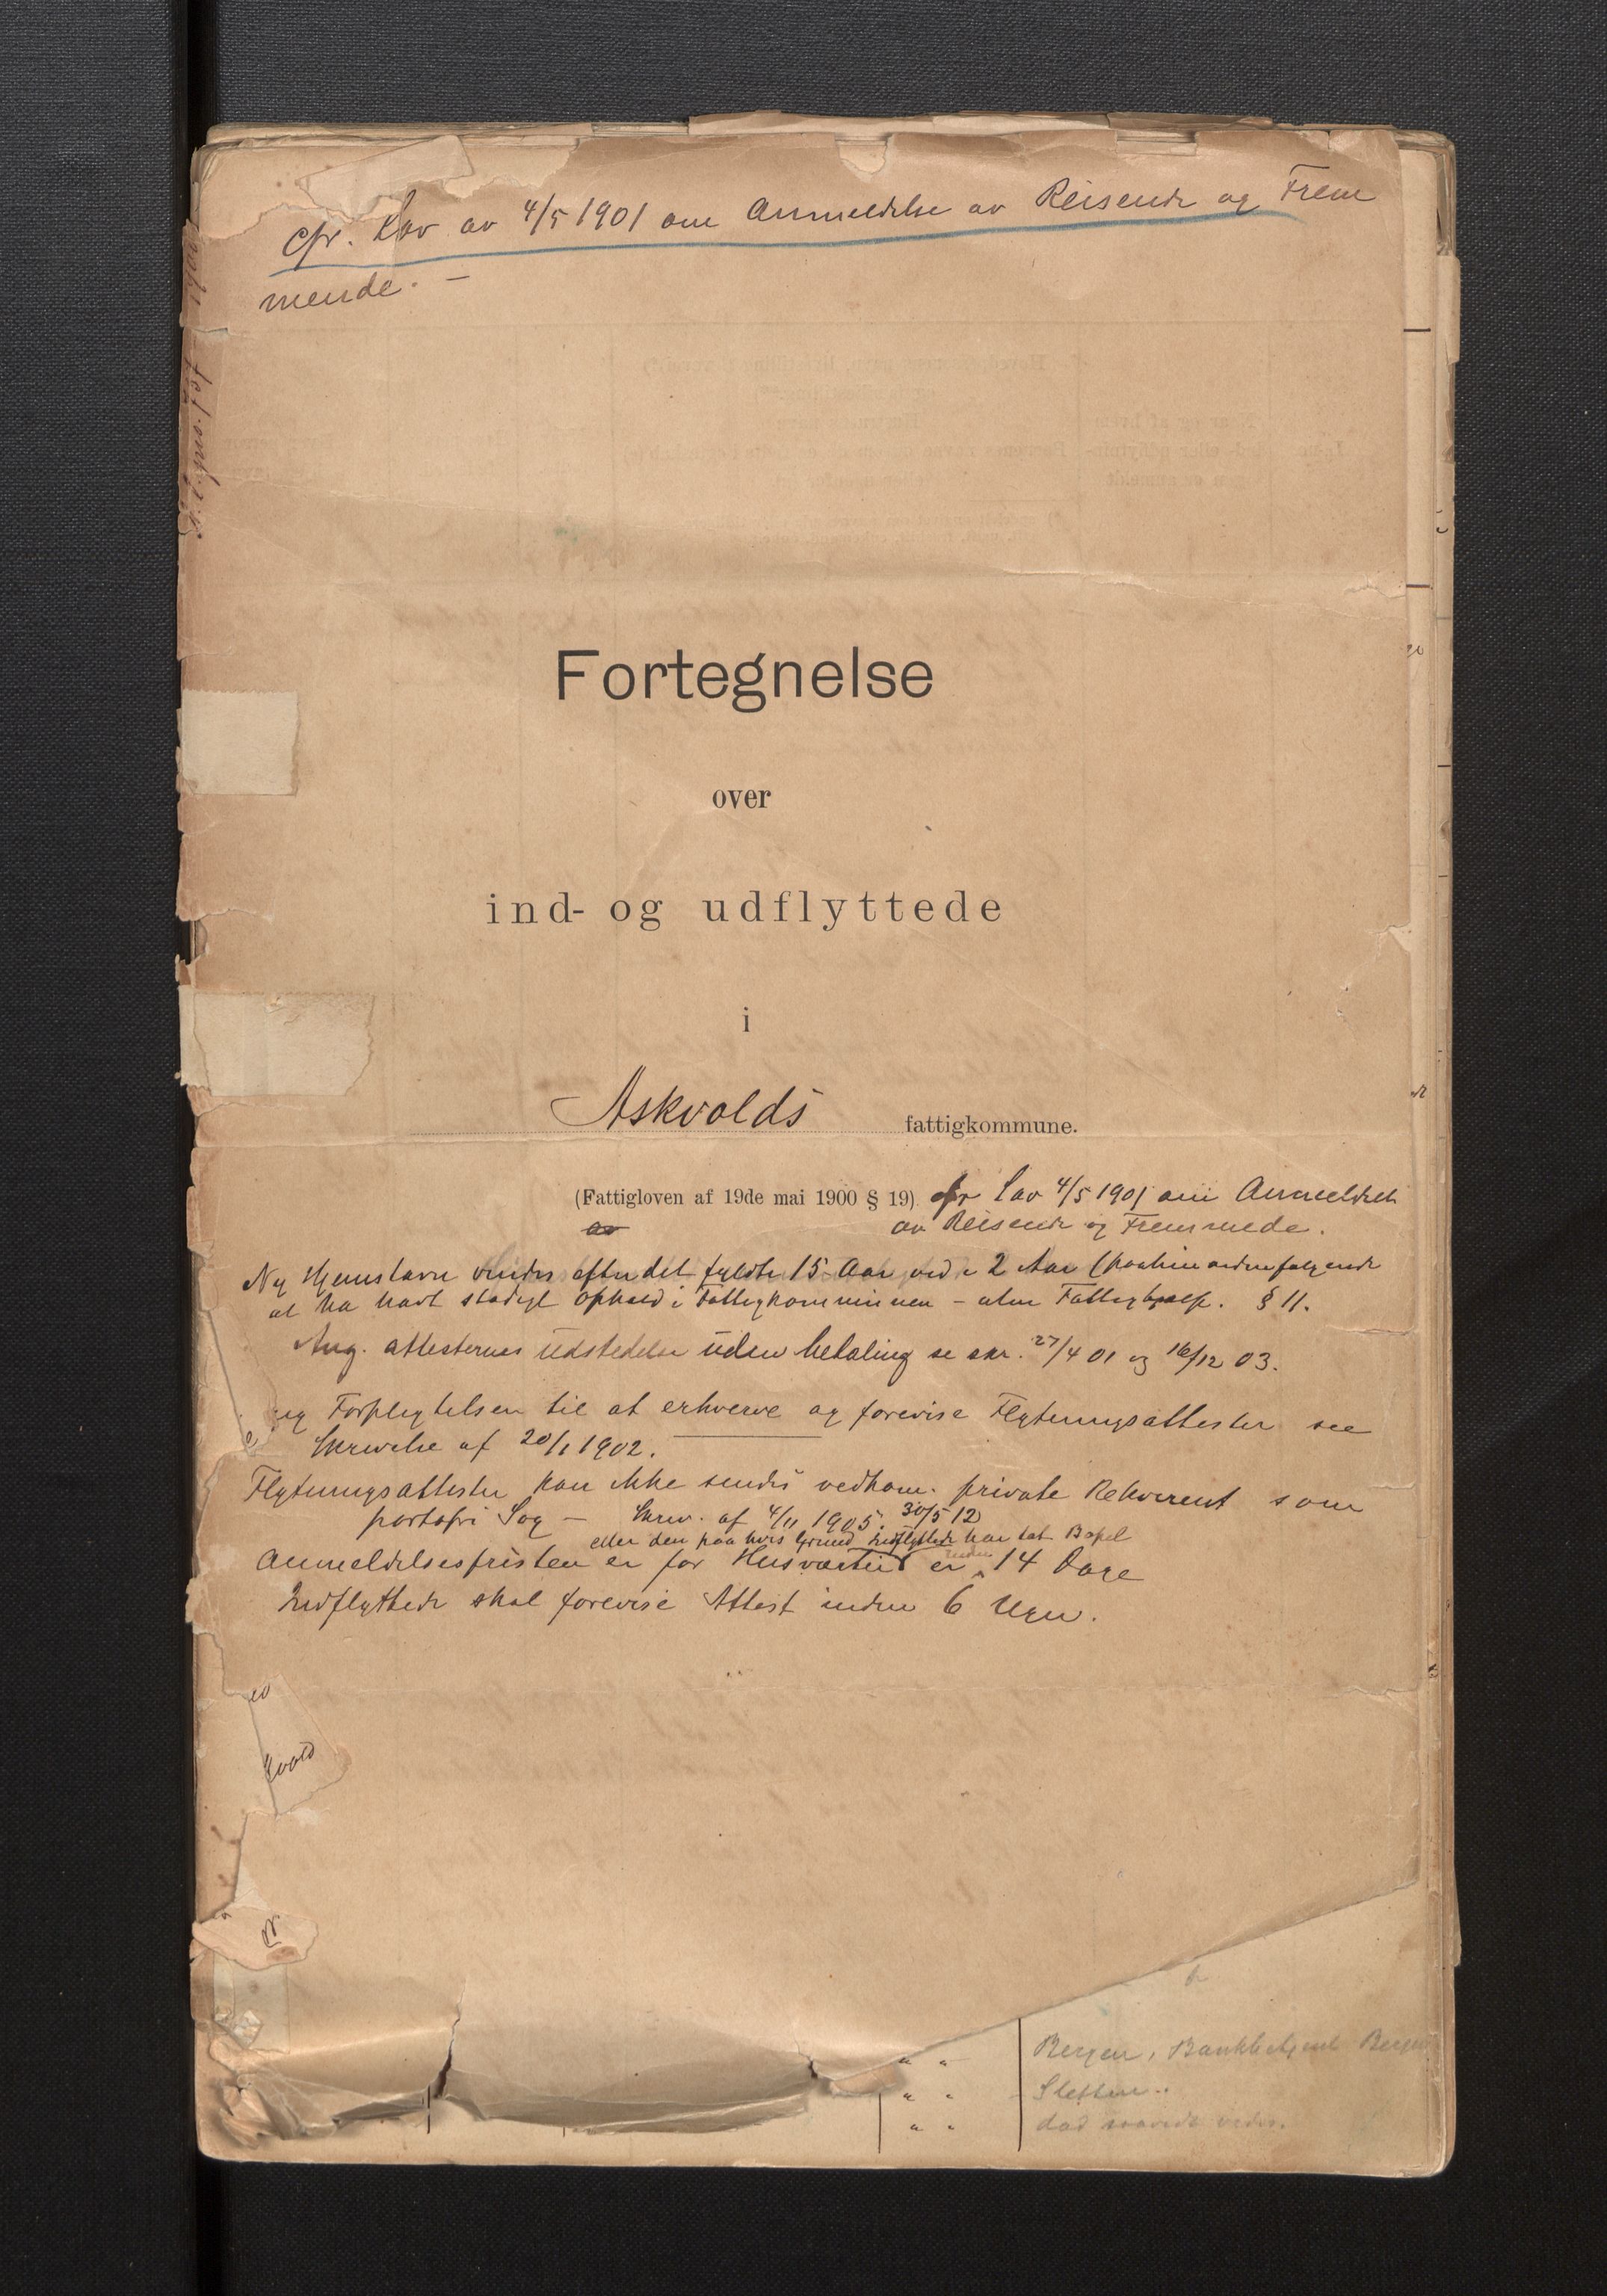 cfr. Lov av 4/5 1901 om Anmeldelse av Reisende og Frem
mende. -
Fortegnelse
over
ind- og udflyttede
i
Askvolds fattigkommune.
(Fattigloven af 19de mai 1900 § 19) cfr Lov 4/5 1901 om Anmeldelse
av Reisende og Fremmede.
Ny Hjemstavn vindes efter det fyldte 15 Aar ved i 2 Aar (paahinandenfølgende
at ha havt stadigt Ophold i Fattigkommunen - uten Fattighjælp. § 11.
Ang. attesternes Udstedelse uden betaling se skr. 27/4 01 og 16/12 03.
Forpligtelsen til at erhverve og forevise Flytningsattester see
Skrivelse af 20/1 1902.
Flytningsattester kan ikke sendes vedkom. private Rekvirent som
portofri Sag - Skriv. af 4/11 1905. 30/5 12
eller den paa hvis Grund Indflyttede har tat Bopæl
Anmeldelsesfristen er for Husværten er inden 14 Dage
Indflyttede skal forevise Attest inden 6 Uger.
Bergen, Bergen
Sletten